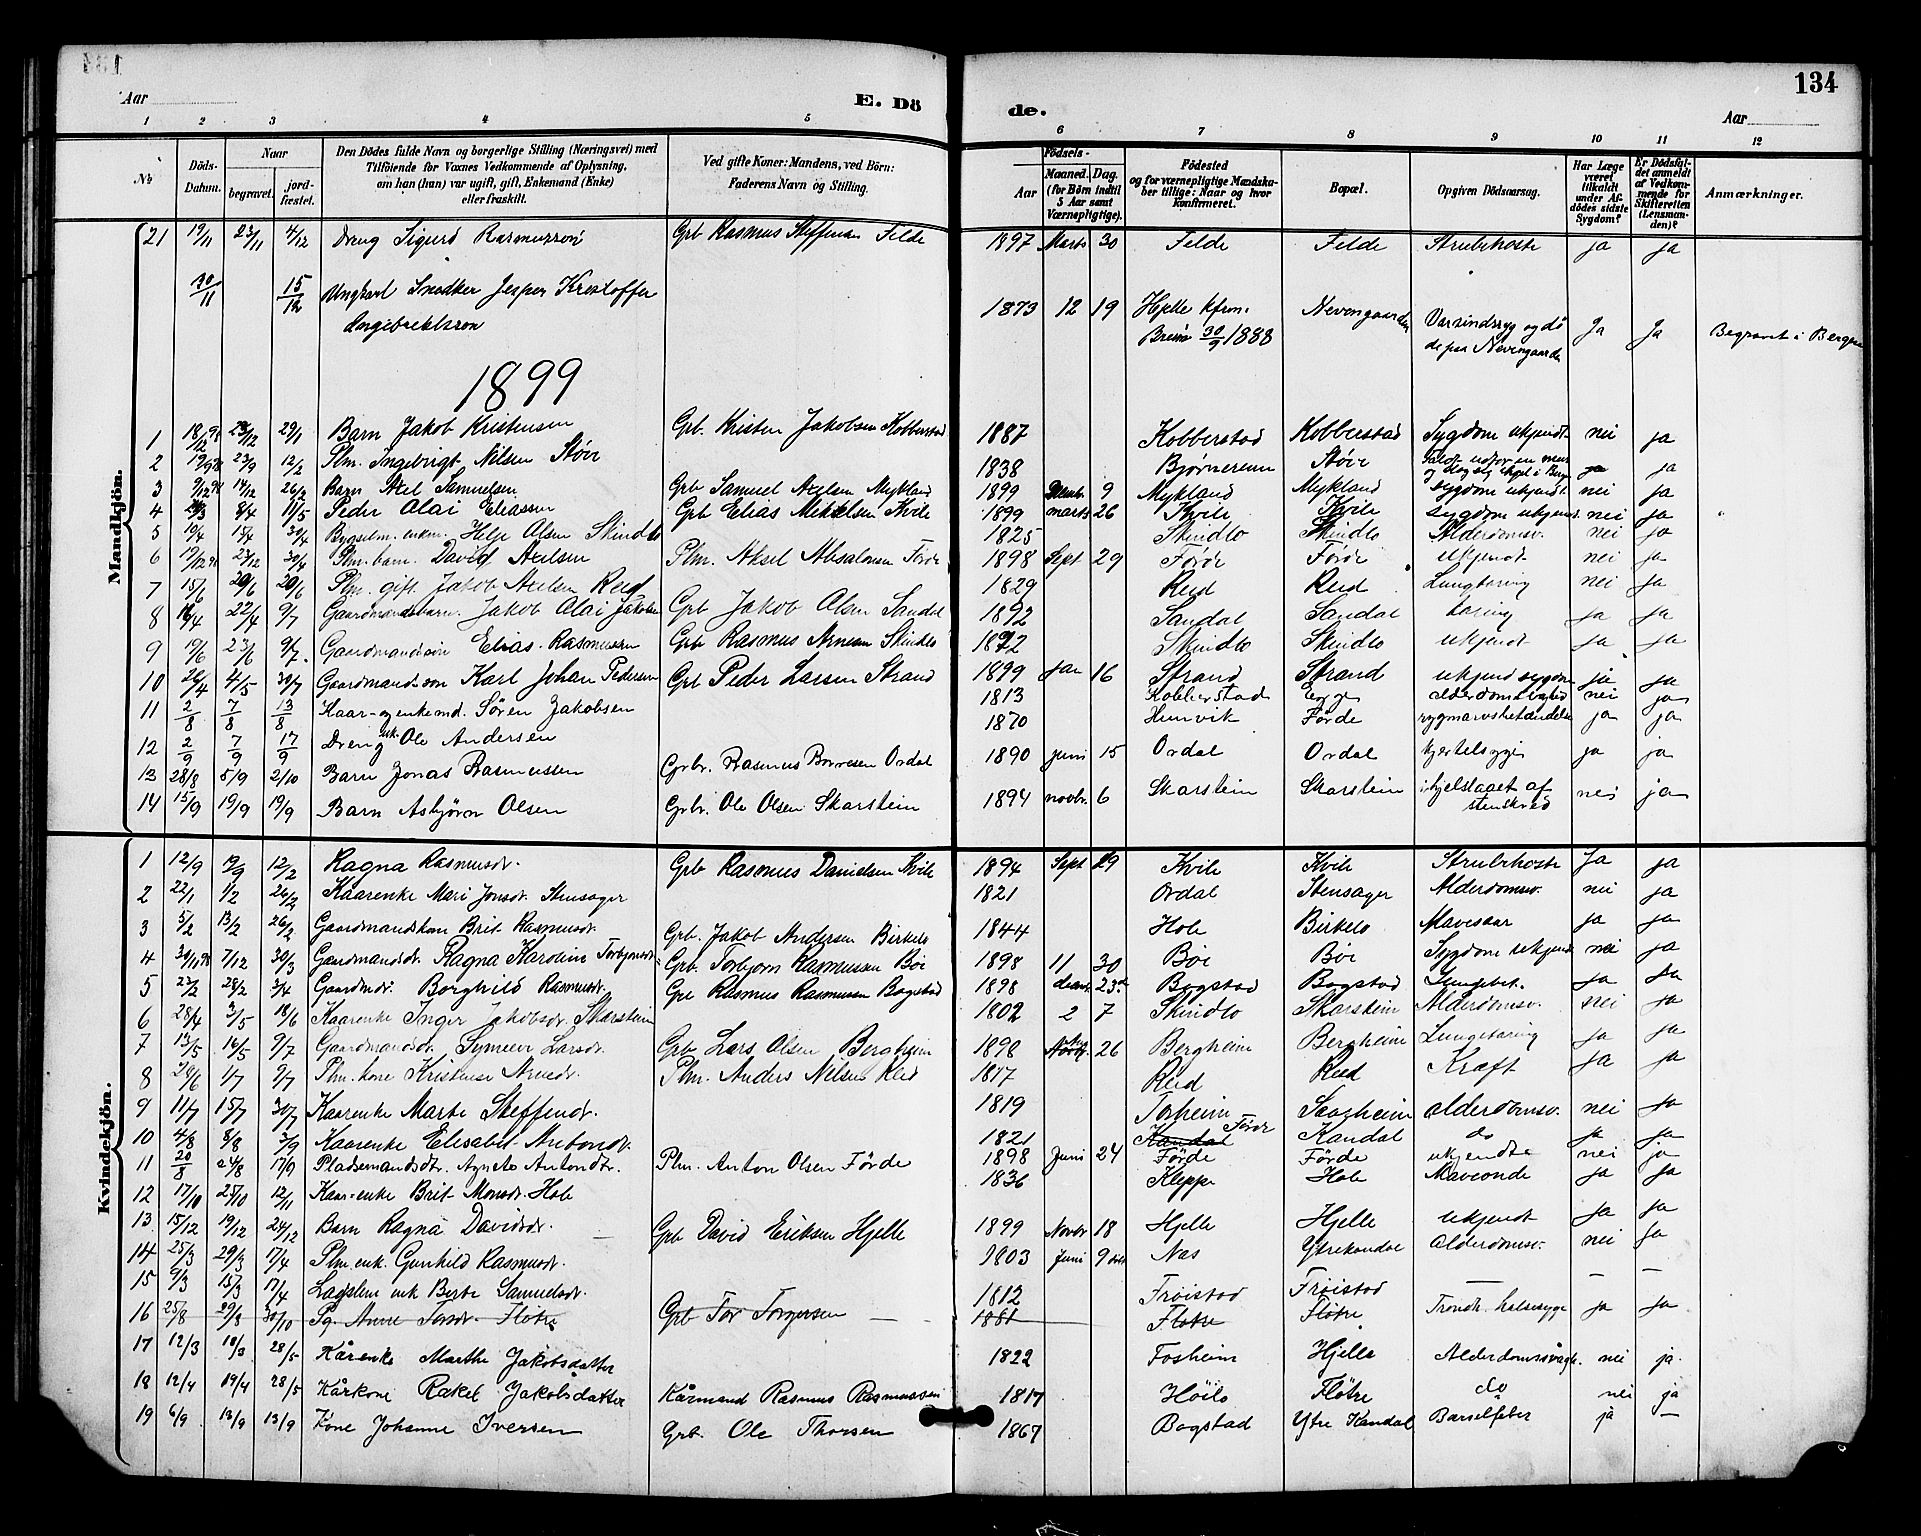 134
Aar
E. Dö
de.
Aar
1 2 3 4 5 6 7 8 9 10 11 12
No
Döds-Datum.
Naar
begravet.
jordfæstet.
Den Dödes fulde Navn og borgerlige Stilling (Næringsvei) med
Tilföiende for Voxnes Vedkommende af Oplysning,
om han (hun) var ugift, gift, Enkemand (Enke)
eller fraskilt.
Ved gifte Koner: Mandens, ved Börn:
Faderens Navn og Stilling.
Födsels-
Aar
Maaned. Dag.
(for Börn indtil
5 Aar samt
Værnepligtige).
Födested
og for værnepligtige Mandskaber tillige: Naar og hvor konfirmeret.
Bopæl.
Opgiven Dödsaarsag.
Har Læge været tilkaldt under Afdödes sidste Sygdom?
Er Dödsfaldet anmeldt af Vedkommende for Skifteretten (Lensmanden)?
Anmærkninger.
Mandkjön.
21 19/11 23/11 4/12 Dreng Sigurd Rasmussøn Grb Rasmus Steffensen Felde 1897 Marts 30 Felde Felde Strubehoste ja ja
30/11 15/12 Ungkarl Snedker Jesper Kristoffer
Ingebrektsøn 1873 12 19 Hjelle Kfrm. Breim 30/9 1888 Nevengaarden Ja Ja Begravet i Bergen
1899
1 18/12 98 23/12 29/1 Barn Jakob Kristensen Grb. Kristen Jakobsen Kobberstad 1887 Kobberstad Kobberstad Sygdom ukjendt nei ja
2 19/9 98 23/9 12/2 Plm. Ingebrigt Nilsen Støir 1838 Bjørnereim Støir ja ja
3 9/12 98 14/12 26/2 Barn Axel Samuelsen Grb Samuel Axelsen Mykland 1899 9 Mykland Mykland Sygdom ukjendt nei ja
4 8/4 11/5 Peder Olai Eliassen Grb Elias Mikkelsen Kvile 1899 marts 26 Kvile Kvile Sygdom ukjendt nei ja
5 10/4 15/4 30/4 Bygselm. enkm. Helje Olsen Skindlo 1825 Skindlo Skindlo Alderdomsv. nei ja
6 19/12 98 23/12 30/4 Plm. barn David Axelsen Plm. Aksel Absalonsen Førde 1898 Sept 29 Førde Førde ukjendt nei ja
7 15/6 20/6 20/6 Plm. gift Jakob Axelsen Reid 1829 Reid Reid Lungtæring nei ja
8 22/4 9/7 Gaardmandsbarn Jakob Olai Jakobsen Grb Jakob Olsen Sandal 1892 Sandal Sandal tæring ja ja
9 19/6 23/6 9/7 Gaardmandssøn Elias Rasmussen Grb Rasmus Arnesen Skindlo 1872 Skindlo Skindlo ukjendt ja ja
10 26/4 4/5 30/7 Gaardmandssøn Karl Johan Pedersen Grb Peder Larsen Strand 1899 jan 16 Strand Strand ukjend sygdom ja ja
11 2/8 7/8 13/8 Kaar-og enkemd. Søren Jakobsen 1813 Kobberstad nei ja
12 2/9 7/9 17/9 Dreng Ole Andersen 1870 Hunvik Førde ja ja
13 28/8 5/9 2/10 Barn Jonas Rasmussen Grbr. Rasmus Ordal 1890 juni 15 Ordal Ordal kjertelsyge ja ja
14 15/9 19/9 19/9 Barn Asbjørn Olsen Grbr. Ole Olsen Skarstein 1894 novbr. 6 Skarstein Skarstein ihjelslaget af stenskred nei ja
Kvindekjön.
1 12/9 12/2 Ragna Rasmusdr. Grb Rasmus Danielsen Kvile 1894 Sept 29 Kvile Kvile Strubehoste Ja ja
2 22/1 1/2 26/2 Kaarenke Mari Jonsdr. Stensager 1821 Ordal Stensager Alderdomsv. nei ja
3 5/2 13/2 26/2 Gaardmandskone Brit Rasmusdr. Grb. Jakob Andersen Birkelo 1844 Hole Birkelo Mavesaar ja ja
4 30/11 98 7/12 30/3 Gaardmandsdr. Ragna Karoline Torbjørnsdr. Grb. Torbjørn Rasmussen Bøi 1898 11 30 Bøi Bøi Sygdom ukjendt nei ja
5 23/2 28/2 3/4 Gaardmdr. Borghild Rasmusdr. Grb Rasmus Rasmussen Bogstad 1898 23 Bogstad Bogstad ja ja
6 28/4 3/5 18/6 Kaarenke Inger Jakobsdr. Skarstein 1802 2 7 Skindlo Skarstein Alderdomsv. nei ja
7 13/5 16/5 9/7 Gaardmandsdr. Larsdr. Grb Lars Olsen Bergheim 1898 26 Bergheim Bergheim Lungetæring ja ja
8 1/7 9/7 Plm. kone Kristense Arnedr. Plm. Anders Nilsen Reid 1817 Reid Reid Kræft ja ja
9 11/7 15/7 30/7 Kaarenke Marte Steffensdr. 1819 Alderdomsv. nei ja
10 4/8 8/8 3/9 Kaarenke Elisabet 1821 Kandal Førde Kandal do ja ja
11 20/8 24/8 17/9 Pladsemandsdtr. Agnete Antondtr. Plm. Anton Olsen Førde 1898 Juni 24 Førde Førde ukjendte nei ja
12 17/10 25/10 12/11 Kaar-enke Brit Monsdr. Hole 1836 Kleppe Hole Maveonde ja ja
13 15/12 19/12 24/12 Barn Ragna Davidsdr. Grb David Eriksen Hjelle 1899 Novbr 18 Hjelle Hjelle ukjendt ja ja
14 25/3 29/3 17/4 Plm. enk. Gunhild Rasmusdr. 1803 Juni 9 Nes Ytrekandal Alderdomsv. nei ja
15 9/3 15/3 17/4 enk Berte Samuelsdr. 1812 Frøistad Frøistad — — —
16 25/8 29/8 30/10 Pg. Anne Torsdr. Fløtre Grb Tor Torgersen 1881 Fløtre Fløtre ja ja
17 12/3 18/3 28/5 Kårenke Marthe Jakobsdatter 1822 Fosheim Hjelle Alderdomssvagh. nei ja
18 12/4 19/4 28/5 Kårkone Rakel Jakobsdatter Kårmand Rasmus Rasmussen 1817 Høilo Fløtre do nei ja
19 6/9 13/9 13/9 Kone Johanne Iversen Grb. Ole Thorsen 1867 Bogstad Ytre Kandal Barselfeber ja —